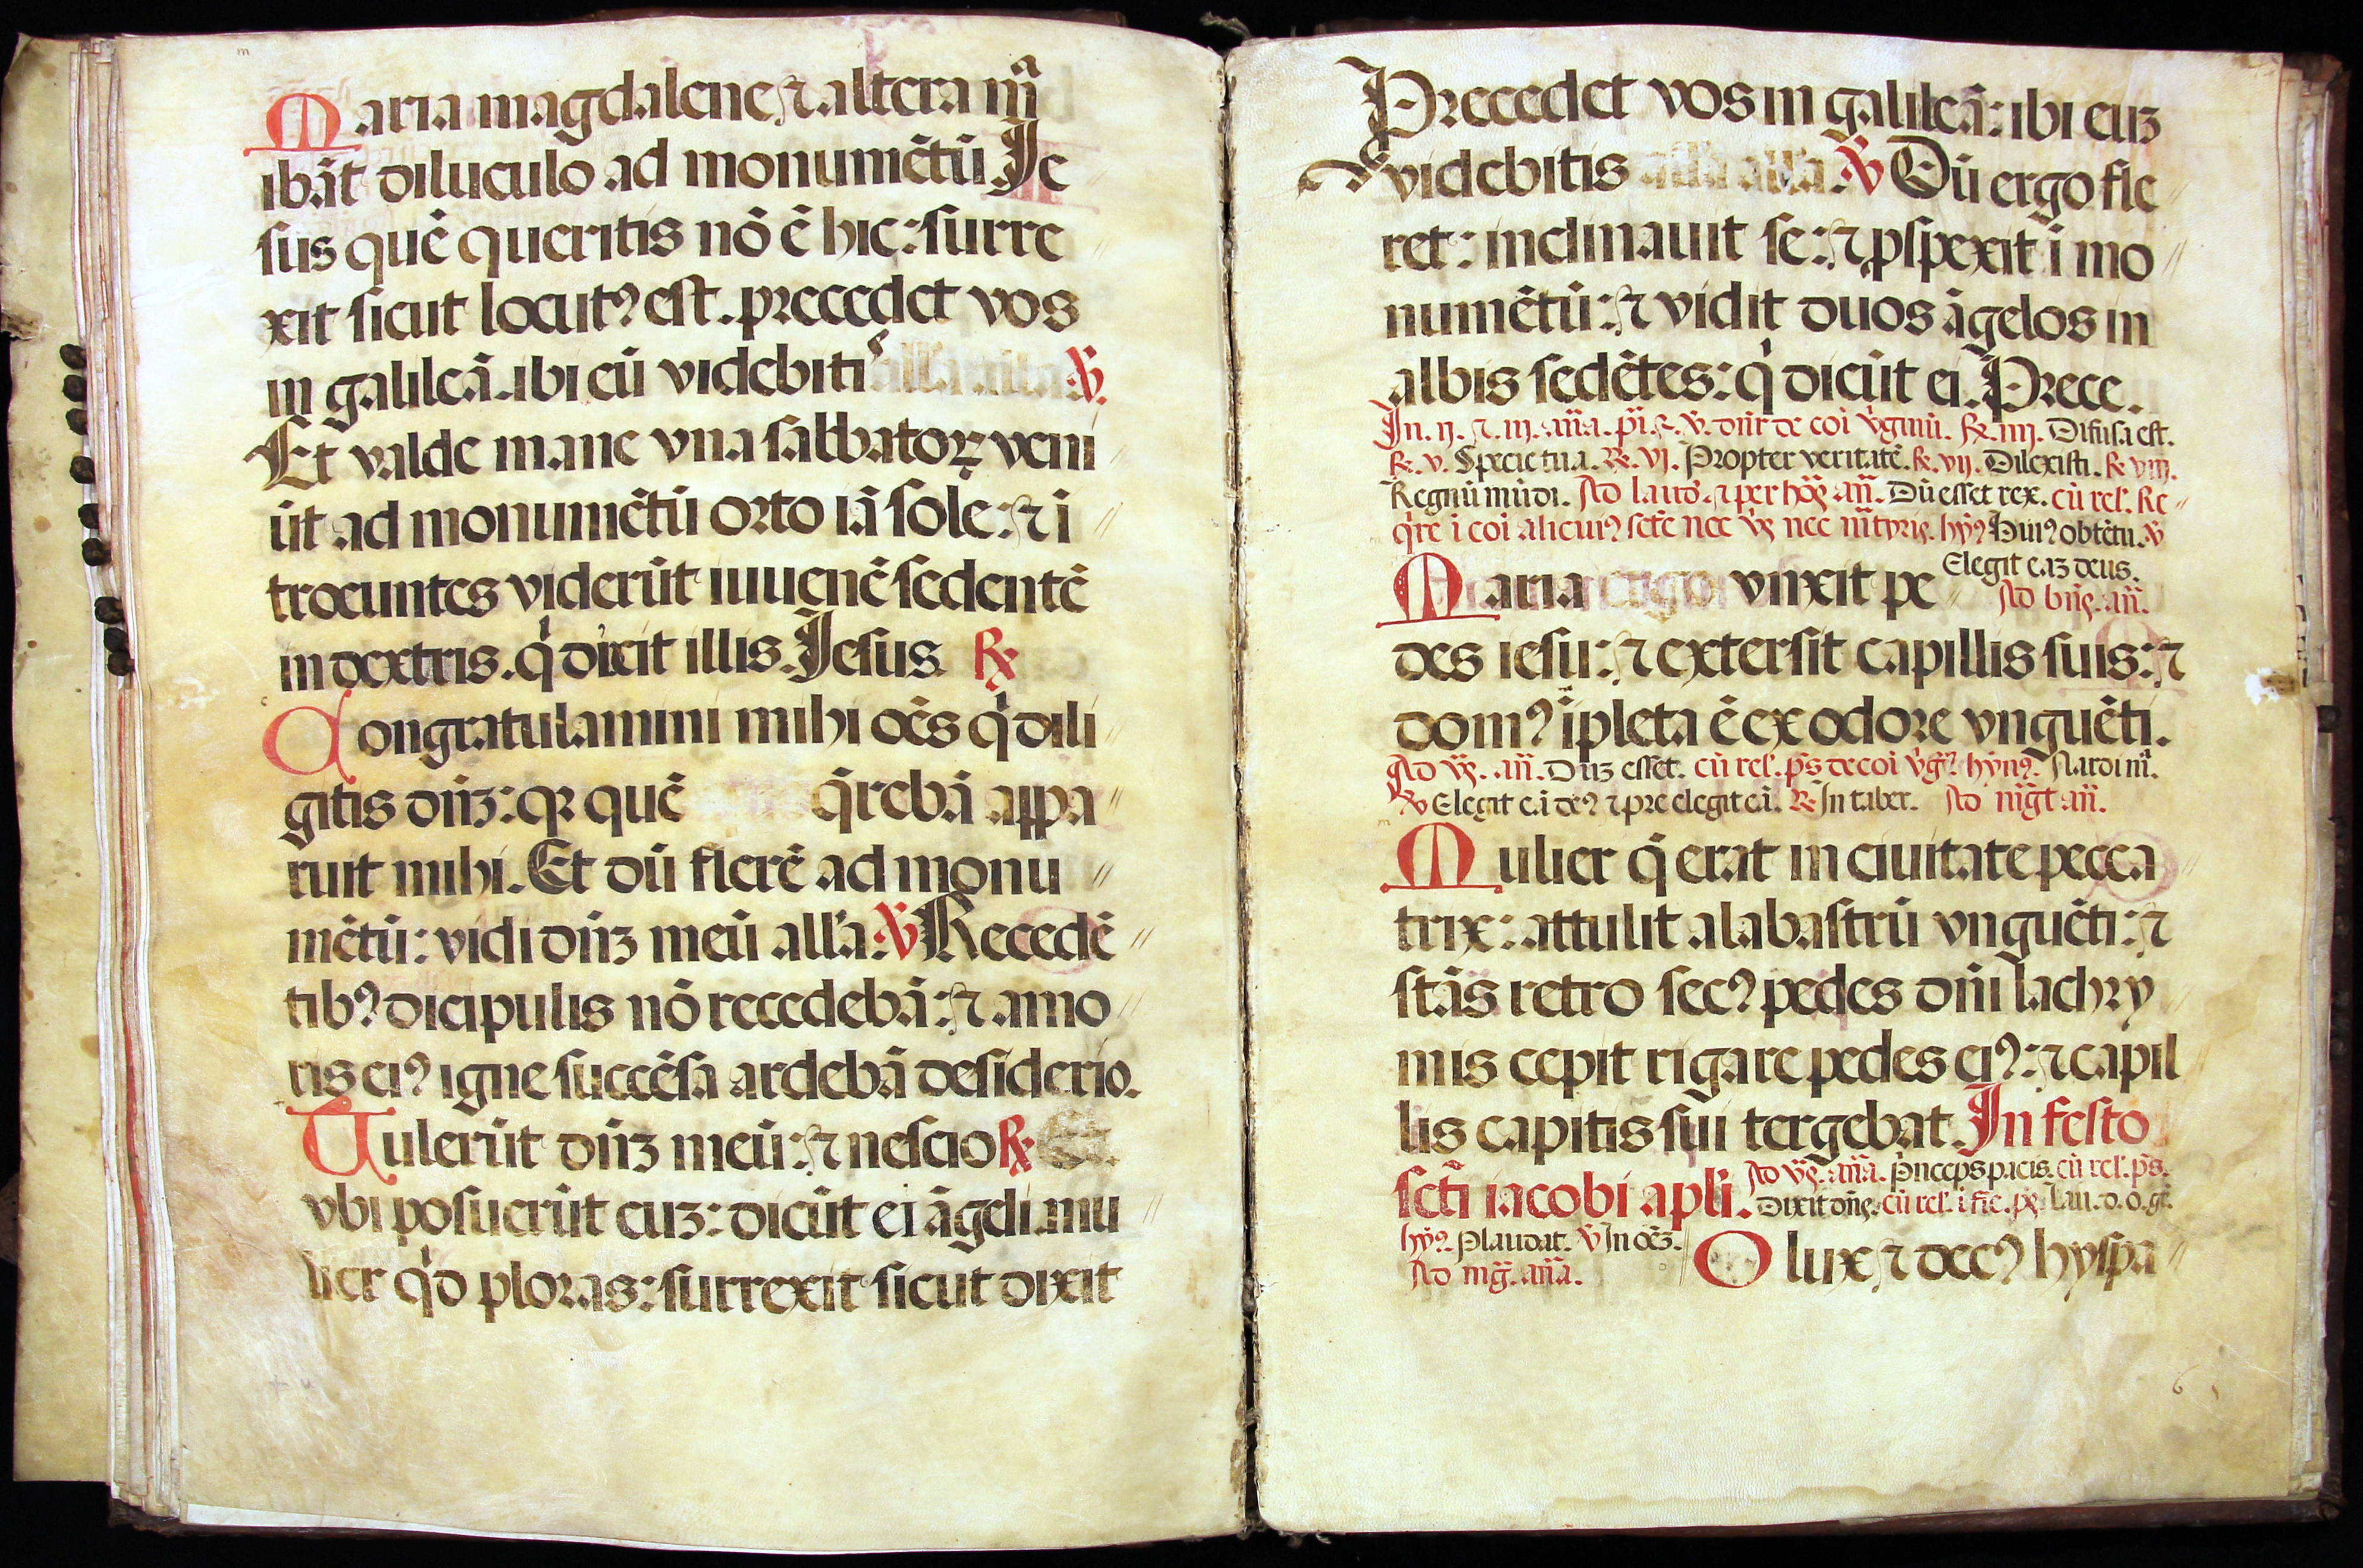 m
Maria magdalene ⁊ altera mᷓa
ibāt diluculo ad monumētū. Je
sus quē queritis nō ē hic: surre
xit sicut locutꝰ est. precedet vos
in galileā. ibi eū videbitis all'a all'a. ℣.
Et valde mane vna sabbatoꝝ veni
ūt ad monumētū orto iā sole: ⁊ ī
troeuntes viderūt iuuenē sedentē
in dextris. q̇ dixit illis. Jesus ℞
Congratulamini mihi oēs q̇ dili
gitis dn̄ʒ: qꝛ quē q̄rebā appa
ruit mihi. Et dū flerē ad monu
mētū: vidi dn̄ʒ meū all'a. ℣ Recedē
tibꝰ dicipulis nō recedebā: ⁊ amo
ris eiꝰ igne succēsa ardebā desiderio.
Tulerūt dn̄ʒ meū: ⁊ nescio ℞ Et.
vbi posuerūt euʒ: dicūt ei āgeli. mu
lier q̇d ploras: surrexit sicut dixit
Precedet vos in galileā: ibi euʒ
videbitis all'a all'a. ℣ Dū ergo fle
ret: inclinauit se: ⁊ ꝓspexit ī mo
numētū: ⁊ vidit duos āgelos in
albis sedētes: q̇ dicūt ei. Prece.
In. ij. ⁊. iij. añа. pī. ⁊. v. dn̄r de coi v̇ginū. ℞. iiij. Difusa est.
℞. v. Specie tua. ℞. vj. Propter veritatē. ℞. vij. Dilexisti. ℞ viij.
Regnū mūdi. Ad laud'. ⁊ per hoꝝ. añ. Dū esset rex. cū rel'. Re
q̇re ī coi alicuiꝰ scte nec v̇ꝫ nec mr̄tyris. hȳꝰ Huiꝰ obtētu. ℣
Elegit eaʒ deus.
Maria ergo vnxit pe Ad bn̄s. añ.
des iesu: ⁊ extersit capillis suis: ⁊
domꝰ īpleta ē ex odore vnguēti.
Ad v̄ꝫ. añ. Dūʒ esset. cū rel'. ps̄ de coi v̇gꝰ. hȳnꝰ. Nardi mᷓ.
℣ Elegit eā deꝰ ⁊ pre elegit eā. ℞ In taber. Ad mḡt añ.
Mulier q̄ erat in ciuitate pecca
trix: attulit alabastrū vnguēti: ⁊
stās retro secꝰ pedes dn̄i lachry
mis cepit rigare pedes eiꝰ: ⁊ capil
lis capitis sui tergebat. In festo
scti iacobi apli. Ad v̄ꝫ. añа. Pnceps pacis. cū rel'. ps̄.
Dixit dn̄s. cū rel'. ī fie. ps̄ Lau. d. o. gē.
hȳꝰ. Plaudat. ℣ In oēʒ.
Ad mḡ. añа. O lux ⁊ decꝰ hyspa
6